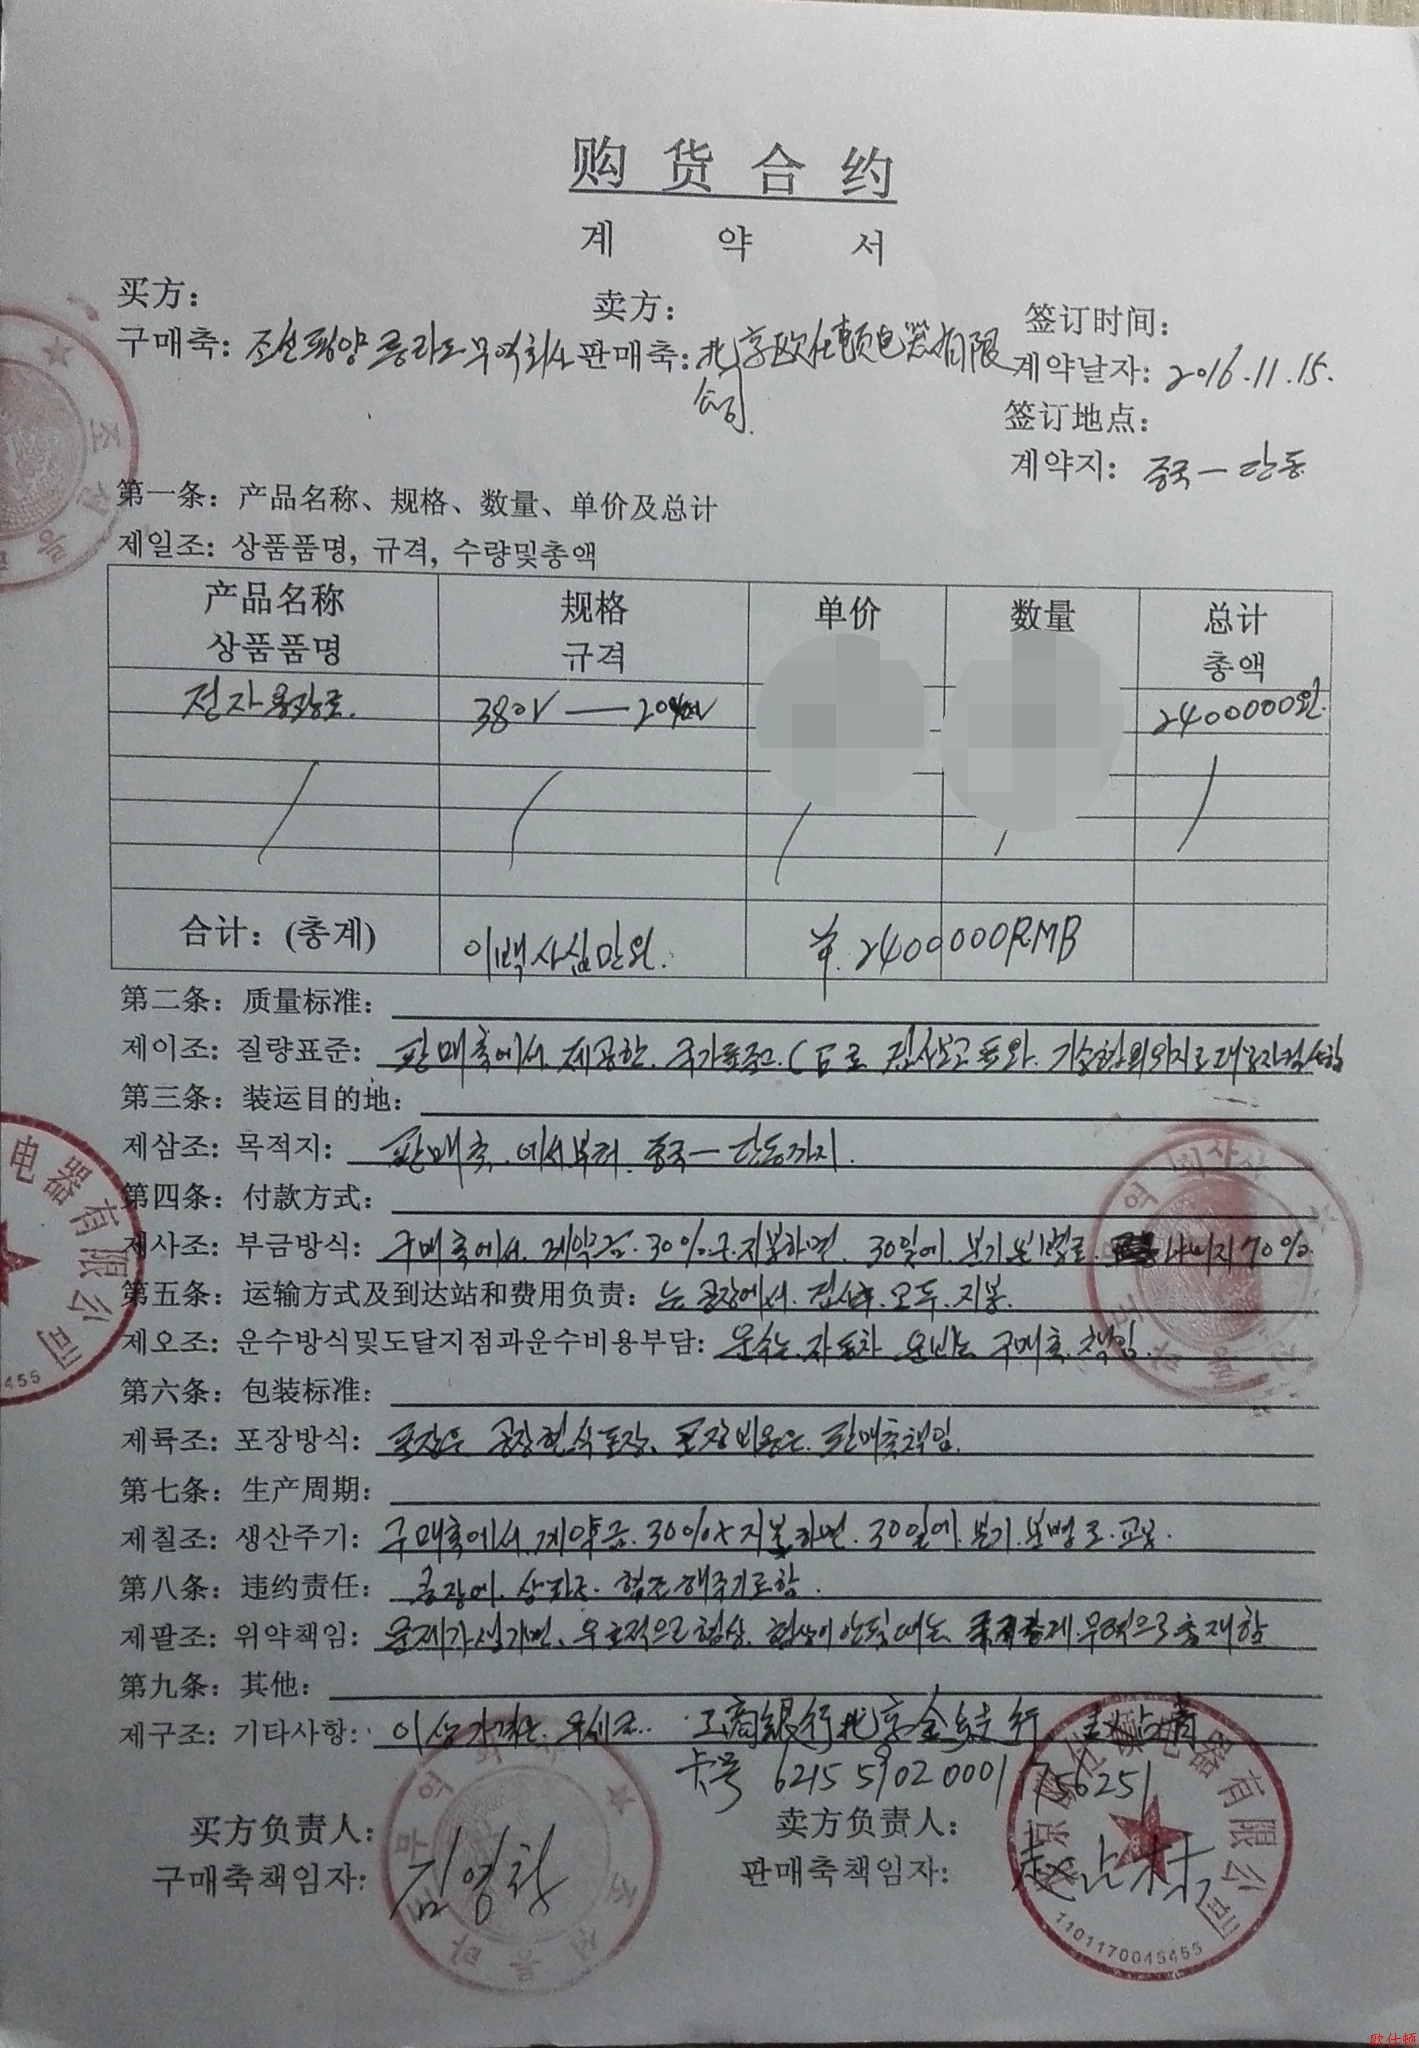 购货合约
계약서
买方：
卖方：
签订时间：
구매축: 조선평양릉라도무역회사
판매축: 北京欧仕顿电器有限
公司
계약날자: 2016.11.15.
签订地点：
계약지: 중국—단동
第一条：产品名称、规格、数量、单价及总计
제일조: 상품품명, 규격, 수량및총액
产品名称 规格 单价 数量 总计
상품품명 규격 총액
전자용광로. 380V — 2400000원.
合计：(총계) 이백사십만원. ￥.2400000RMB
第二条：质量标准：
제이조: 질량표준: 판매축에서 제공한 국가표준
第三条：装运目的地：
제삼조: 목적지: 판매축.에서부터 중국—단동까지.
第四条：付款方式：
제사조: 부금방식: 구매축에서 계약금.30% 지불하면. 30일에. 나머지70%.
第五条：运输方式及到达站和费用负责： 는 공장에서. 검사후. 모두. 지불.
제오조: 운수방식및도달지점과운수비용부담: 운수는.자동차. 운비는 구매축.책임.
第六条：包装标准：
제륙조: 포장방식: 포장은 공장현식포장, 포장비용은. 판매축책임.
第七条：生产周期：
제칠조: 생산주기: 구매축에서.계약금.30% 지불하면. 30일에.
第八条：违约责任： 공장에.
제팔조: 위약책임: 문제가생기면. 우호적으로협상. 협상이안될때는. 중재함
第九条：其他：
제구조: 기타사항: 이상가격은.무세로. 工商银行北京金 支行
卡号 6215 5902 0001 756251
买方负责人：
卖方负责人：
구매축책임자: 김영환
판매축책임자:
北京欧仕顿电器有限公司
1101170045455
电器有限公司
欧仕顿